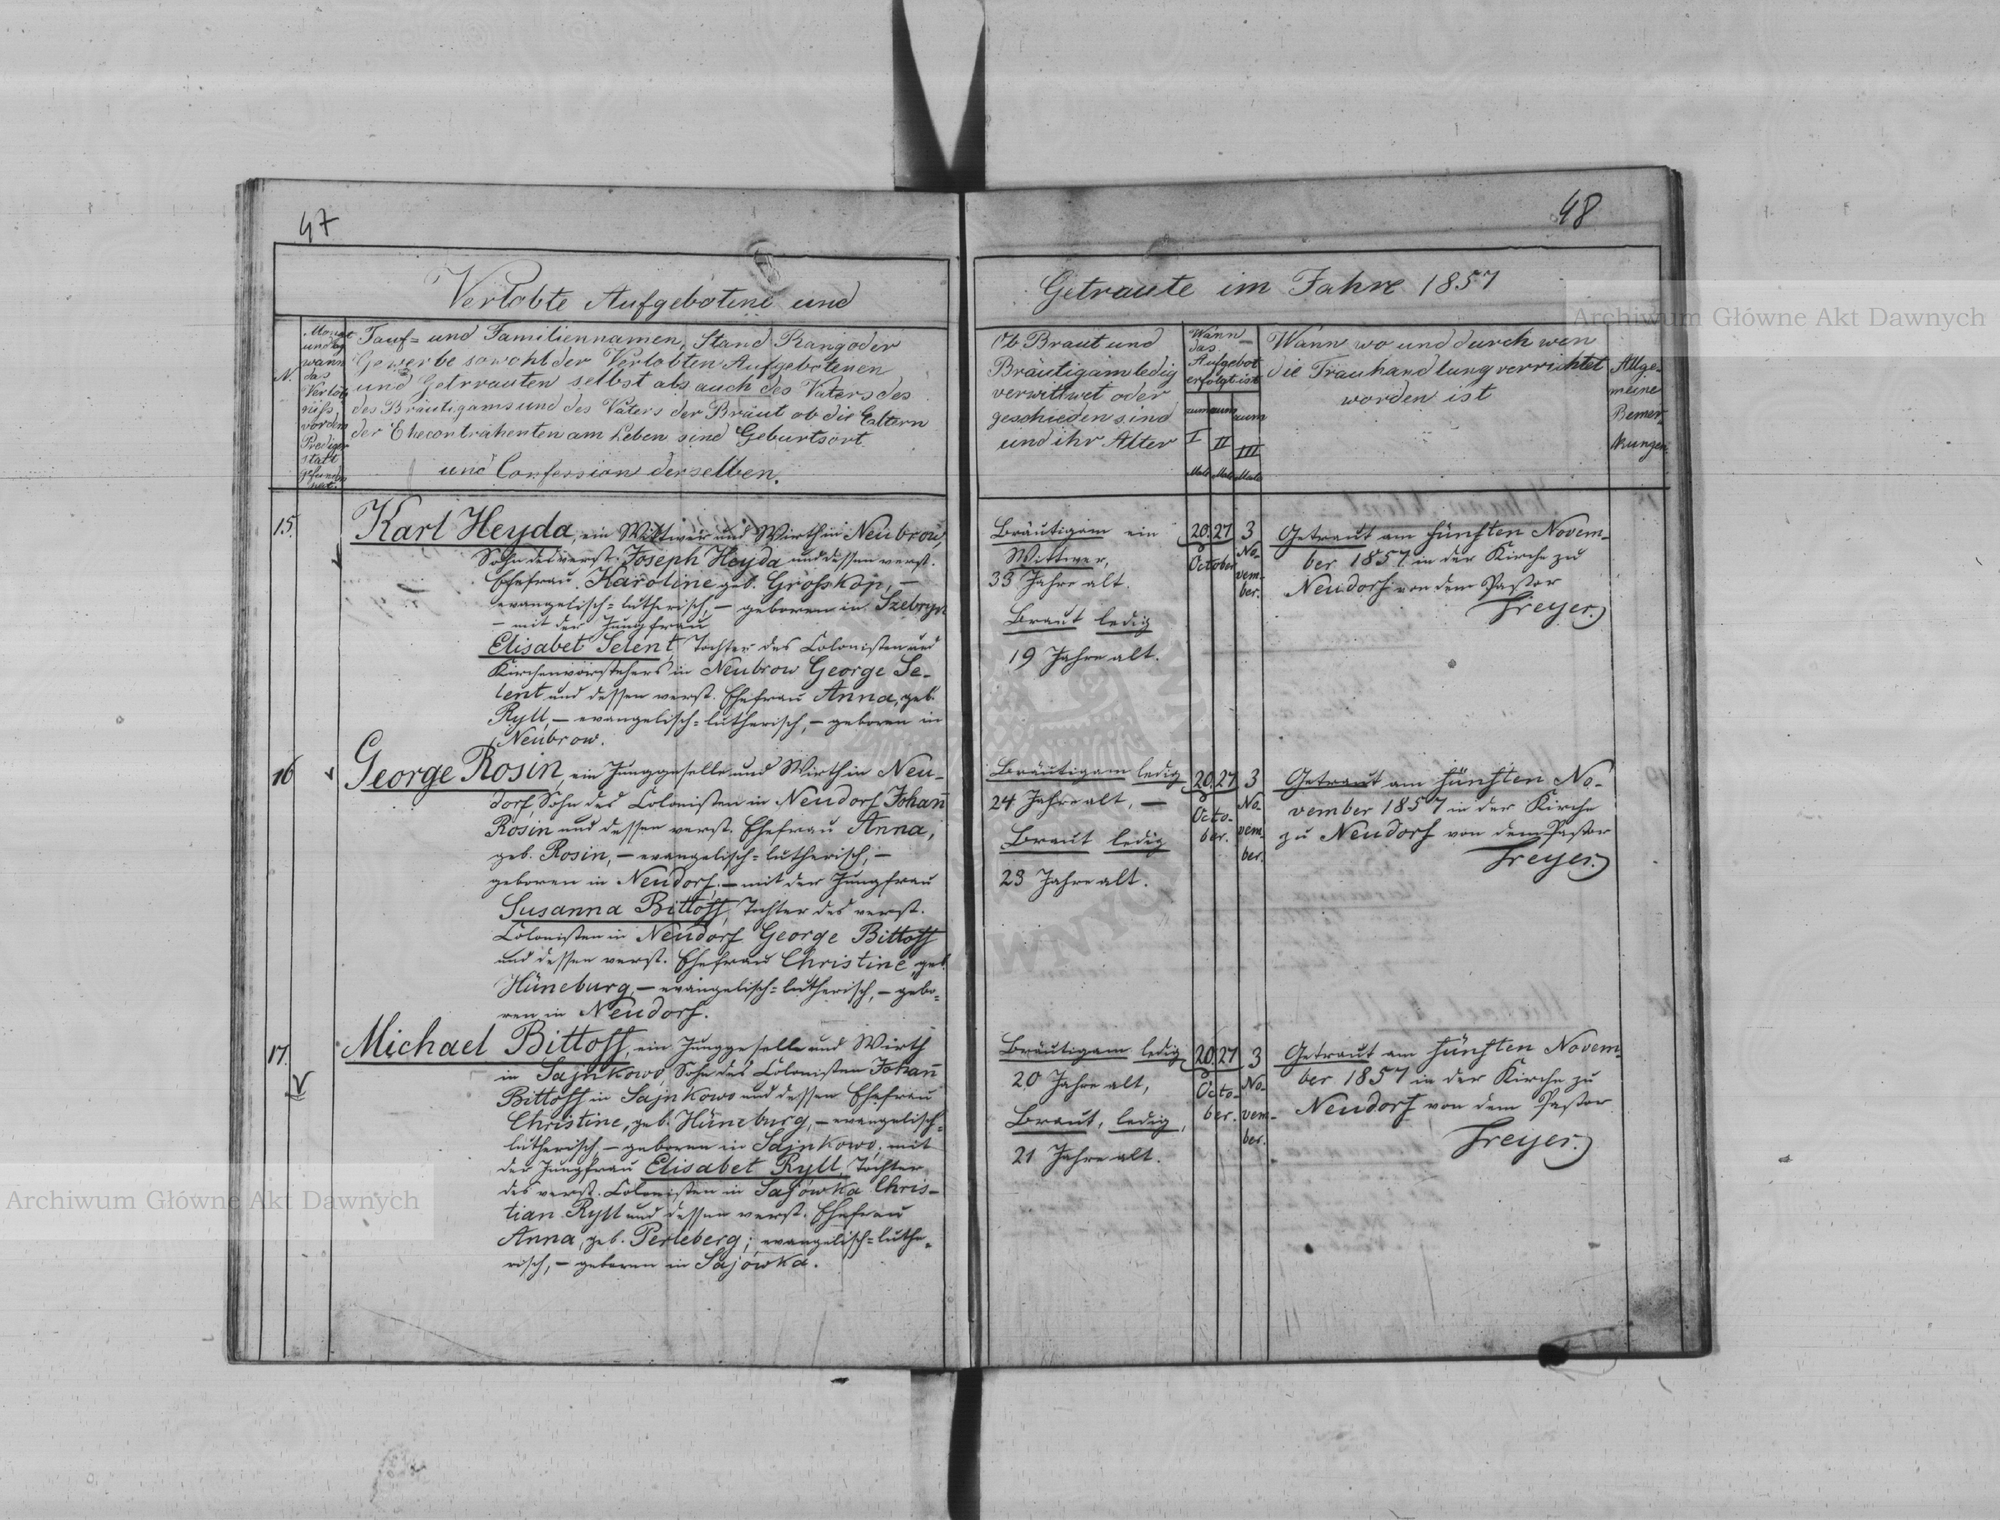 47
Verlobte Aufgebotene und
N.
Monat
und Tag
wann
das
Verlöb-
niß
vor dem
Prediger
statt
gefunden
hat.
Tauf- und Familiennamen, Stand Rang oder
Gewerbe sowohl der Verlobten Aufgebotenen
und Getrauten selbst als auch des Vaters des
des Bräutigams und des Vaters der Braut ob die Eltern
der Ehecontrahenten am Leben sind Geburtsort
und Confession derselben.
15.
Karl Heyda, ein Wittwer und Wirth in Neubrow,
Sohn des verst. Joseph Heyda und dessen verst.
Ehefrau Karoline geb. Großkop, –
evangelisch-lutherisch, – geboren in Szebryn
– mit der Jungfrau
Elisabet Selent, Tochter des Colonisten und
Kirchenvorstehers in Neubrow George Se-
lent und dessen verst. Ehefrau Anna, geb.
Ryll, – evangelisch-lutherisch, – geboren in
Neubrow.
16
George Rosin, ein Junggeselle und Wirth in Neu-
dorf, Sohn des Colonisten in Neudorf Johann
Rosin und dessen verst. Ehefrau Anna,
geb. Rosin, – evangelisch-lutherisch, –
geboren in Neudorf; – mit der Jungfrau
Susanna Bittoff, Tochter des verst.
Colonisten in Neudorf George Bittoff
und dessen verst. Ehefrau Christine geb.
Hüneburg, – evangelisch-lutherisch, – gebo-
ren in Neudorf.
17.
Michael Bittoff, ein Junggeselle und Wirth
in Sajnkowo, Sohn des Colonisten Johann
Bittoff in Sajnkowo und dessen Ehefrau
Christine, geb. Hüneburg, – evangelisch-
lutherisch, – geboren in Sajnkowo; mit
der Jungfrau Elisabet Ryll, Tochter
des verst. Colonisten in Sajówka Chris-
tian Ryll und dessen verst. Ehefrau
Anna, geb. Perleberg; evangelisch-luthe-
risch, – geboren in Sajówka.
48
Getraute im Jahre 1857
Ob Braut und
Bräutigam ledig
verwittwet oder
geschieden sind
und ihr Alter
Wann
das
Aufgebot
erfolgt ist
zum zum zum
I II III
Male Male Male
Wann wo und durch wen
die Trauhandlung verrichtet
worden ist
Allge-
meine
Bemer-
kungen
Bräutigam ein
Wittwer,
33 Jahre alt.
Braut ledig
19 Jahre alt.
20. 27 3
October No-
vem-
ber.
Getraut am fünften Novem-
ber 1857 in der Kirche zu
Neudorf von dem Pastor
Freyer.
Bräutigam ledig
24 Jahre alt, –
Braut ledig
23 Jahre alt.
20. 27 3
Octo- No-
ber. vem-
ber.
Getraut am fünften No-
vember 1857 in der Kirche
zu Neudorf von dem Pastor
Freyer.
Bräutigam ledig
20 Jahre alt,
Braut, ledig,
21 Jahre alt.
20 27 3
Octo- No-
ber. vem-
ber.
Getraut am fünften Novem-
ber 1857 in der Kirche zu
Neudorf von dem Pastor
Freyer.
Archiwum Główne Akt Dawnych
Archiwum Główne Akt Dawnych